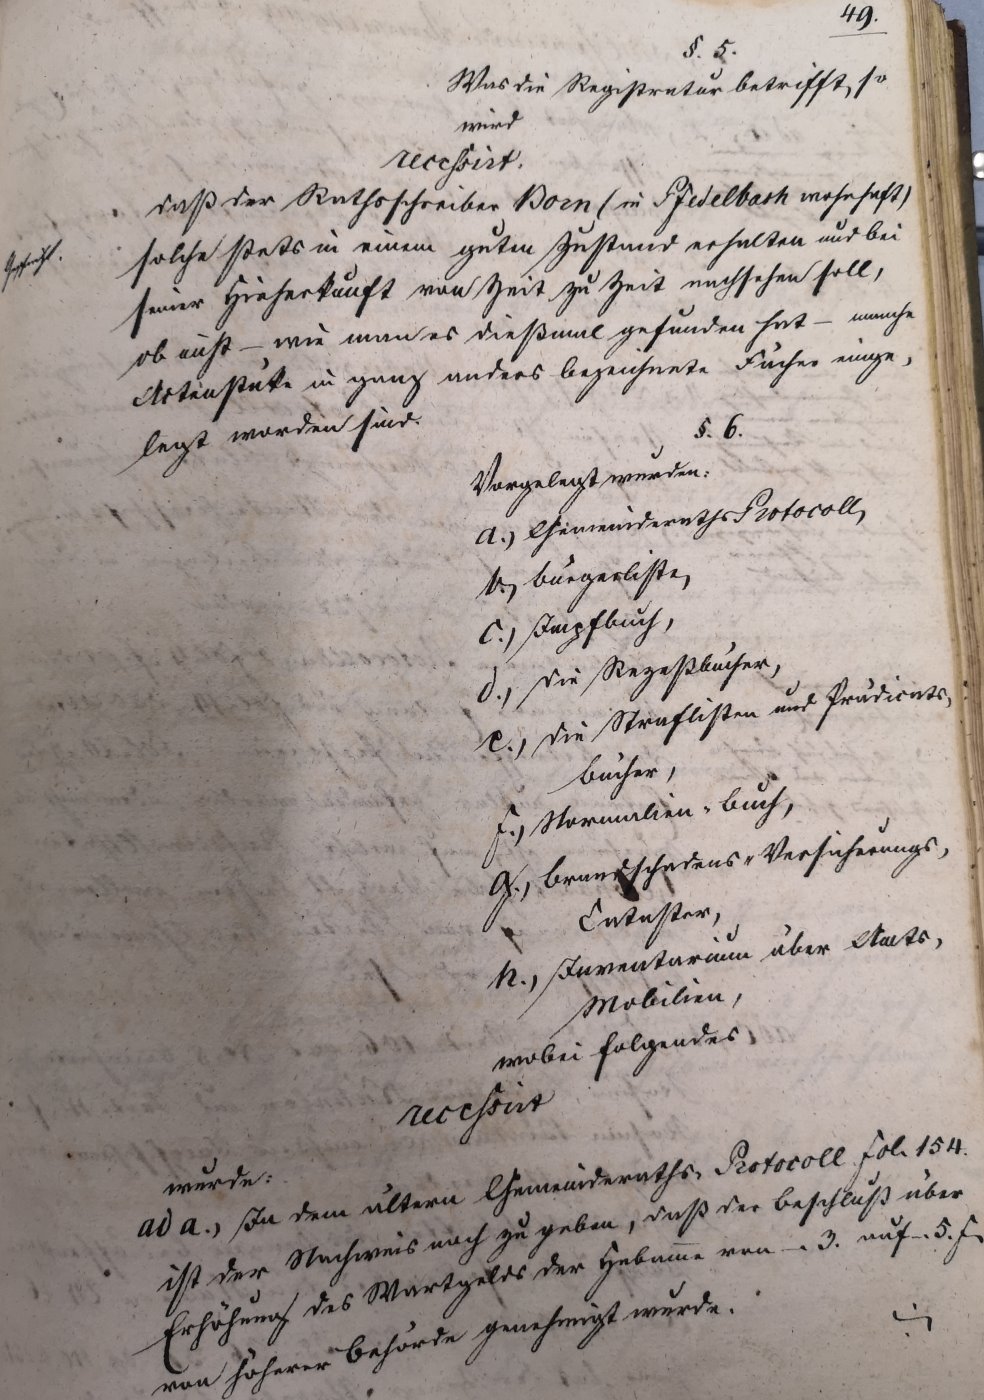 49.
§. 5.
Was die Registratur betrifft, so
wird
recessirt.
daß der Rathsschreiber Born (in Pfedelbach wohnhaft)
solche stets in einem guten Zustand erhalten und bei
seiner Hieherkunft von Zeit zu Zeit nachsehen soll,
ob nicht – wie man es dießmal gefunden hat – manche
Actenstüke in ganz anders bezeichnete Fächer einge-
legt worden sind.
§. 6.
Vorgelegt wurden:
a.) Gemeinderaths Protocoll,
b.) Bürgerliste,
c.) Impfbuch,
d.) die Rezeßbücher,
e.) die Straflisten und Prädicats-
bücher,
f.) Normalien-Buch,
g.) Brandschadens-Versicherungs-
Cataster,
h.) Inventarium über Amts-
Mobilien,
wobei folgendes
recessirt
wurde:
ad a.) In dem ältern Gemeinderaths-Protocoll fol. 154.
ist der Nachweis noch zu geben, daß der Beschluß über
Erhöhung des Wartgelds der Hebamme von –. 3. auf –. 5. f
von höherer Behörde genehmigt wurde.